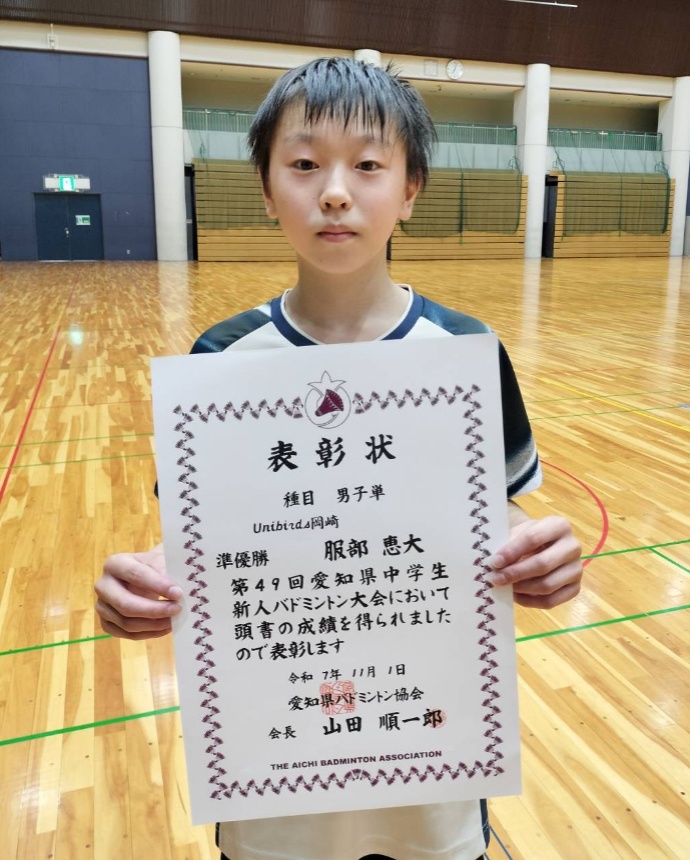 表彰状
種目 男子単
Unibirds岡崎
準優勝 服部 恵大
第49回愛知県中学生
新人バドミントン大会において
頭書の成績を得られました
ので表彰します
令和 7年 11月 1日
愛知県バドミントン協会
会長 山田 順一郎
THE AICHI BADMINTON ASSOCIATION